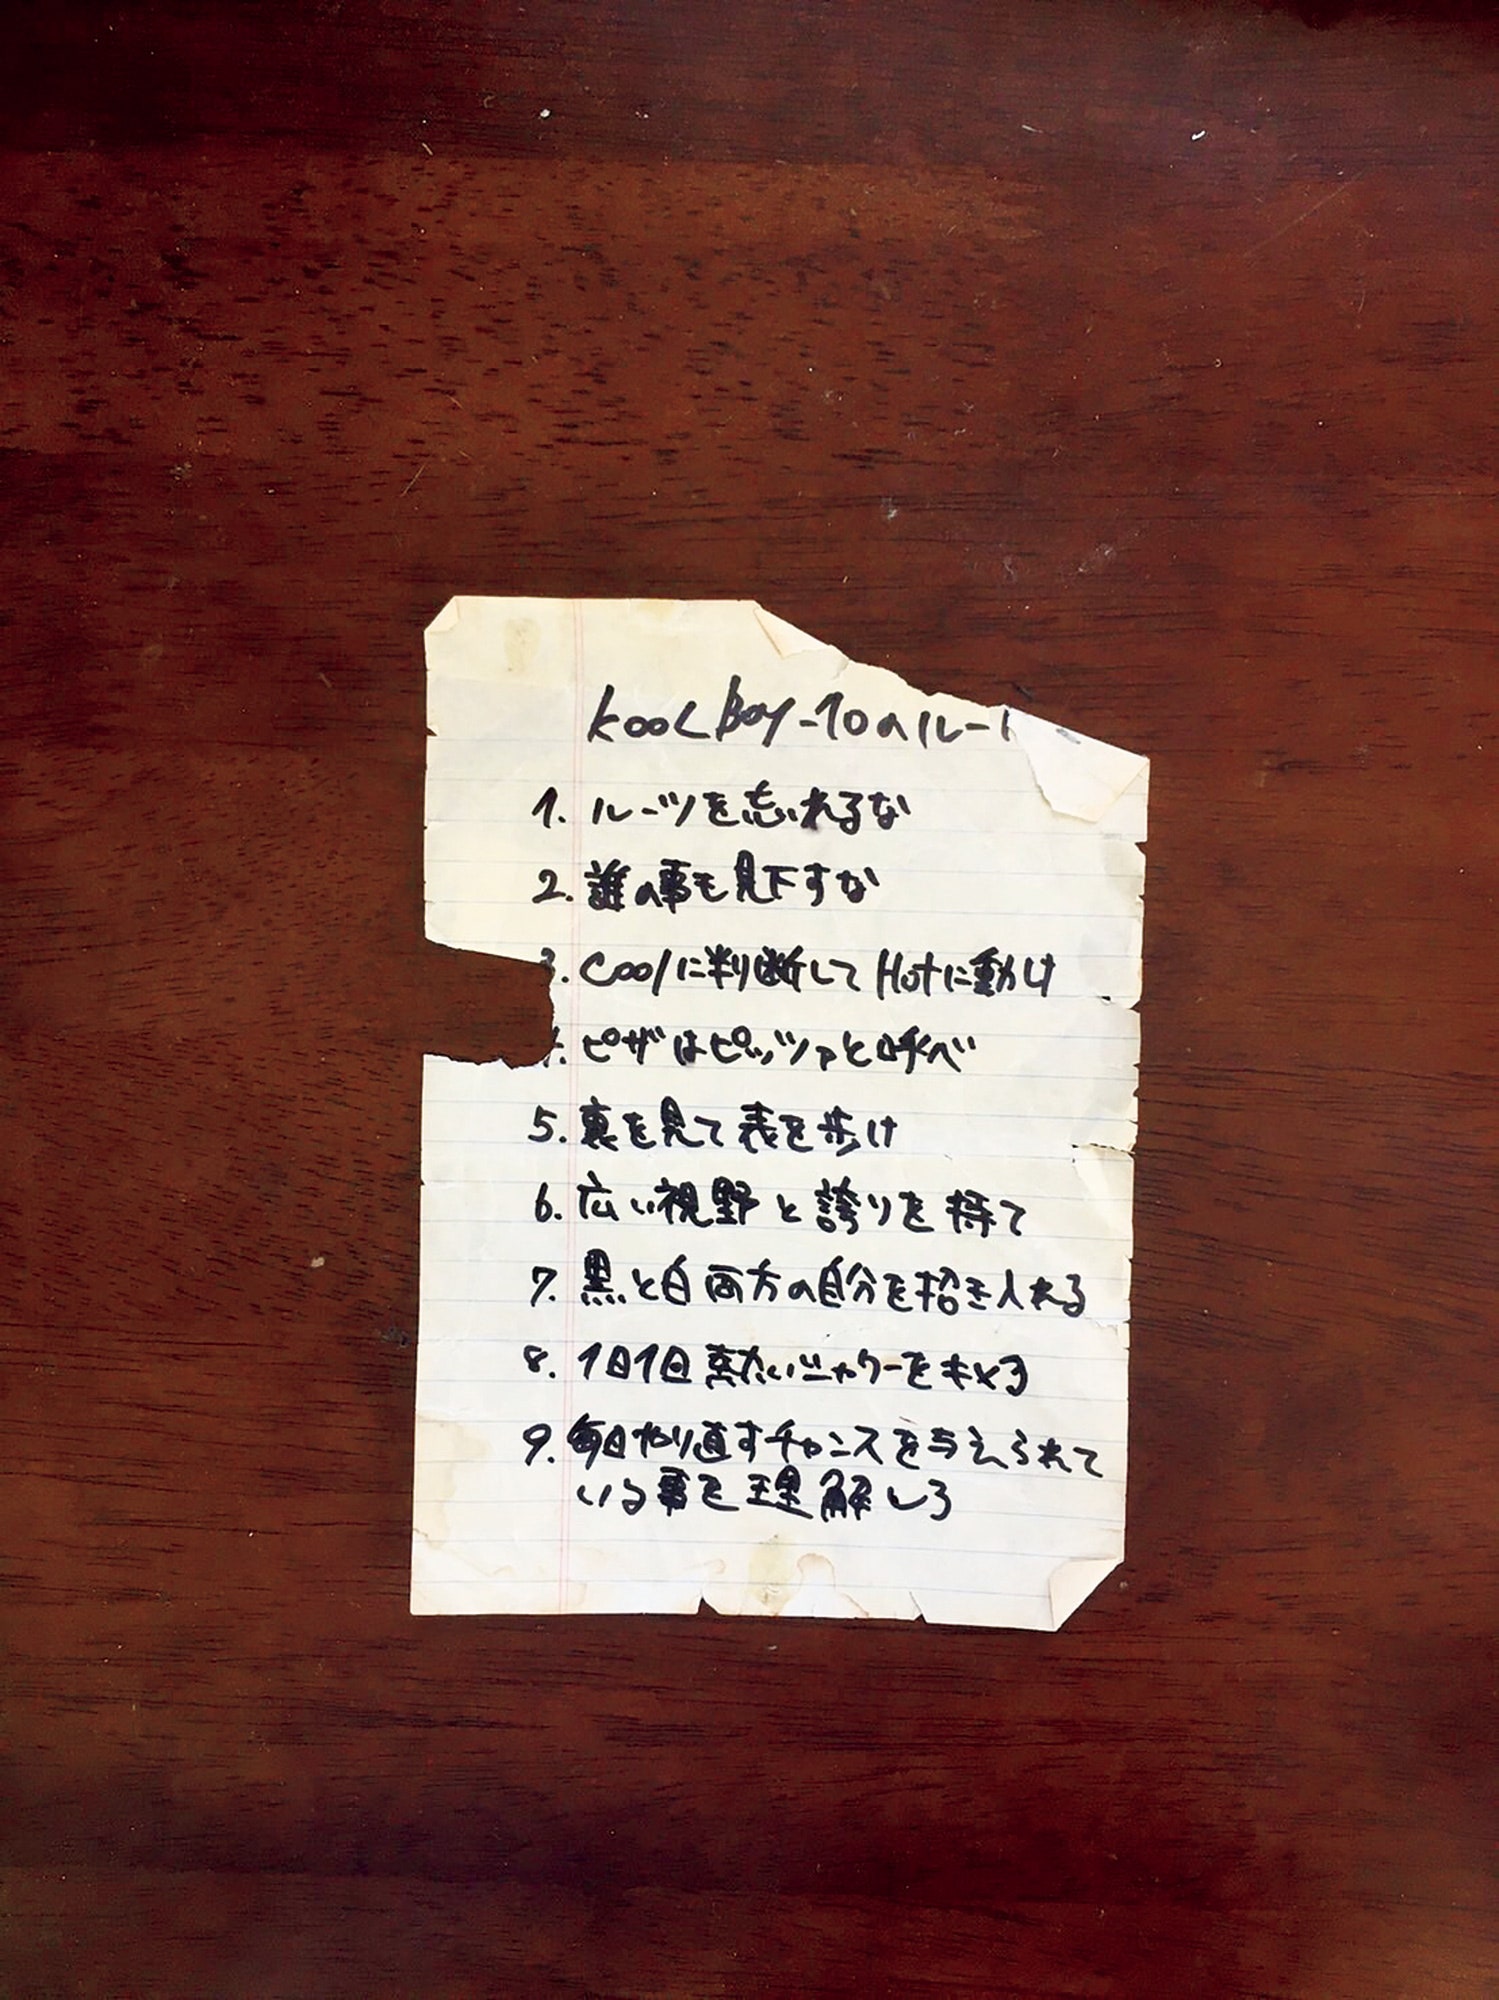 KooL Boy-10のルー
1. ルーツを忘れるな
2. 誰の事も見下すな
3. Coolに判断して Hotに動け
. ピザはピッツァと呼べ
5. 裏を見て表を歩け
6. 広い視野と誇りを持て
7. 黒と白両方の自分を招き入れる
8. 1日1回熱いシャワーをキメる
9. 毎日やり直すチャンスを与えられて
いる事を理解しろ